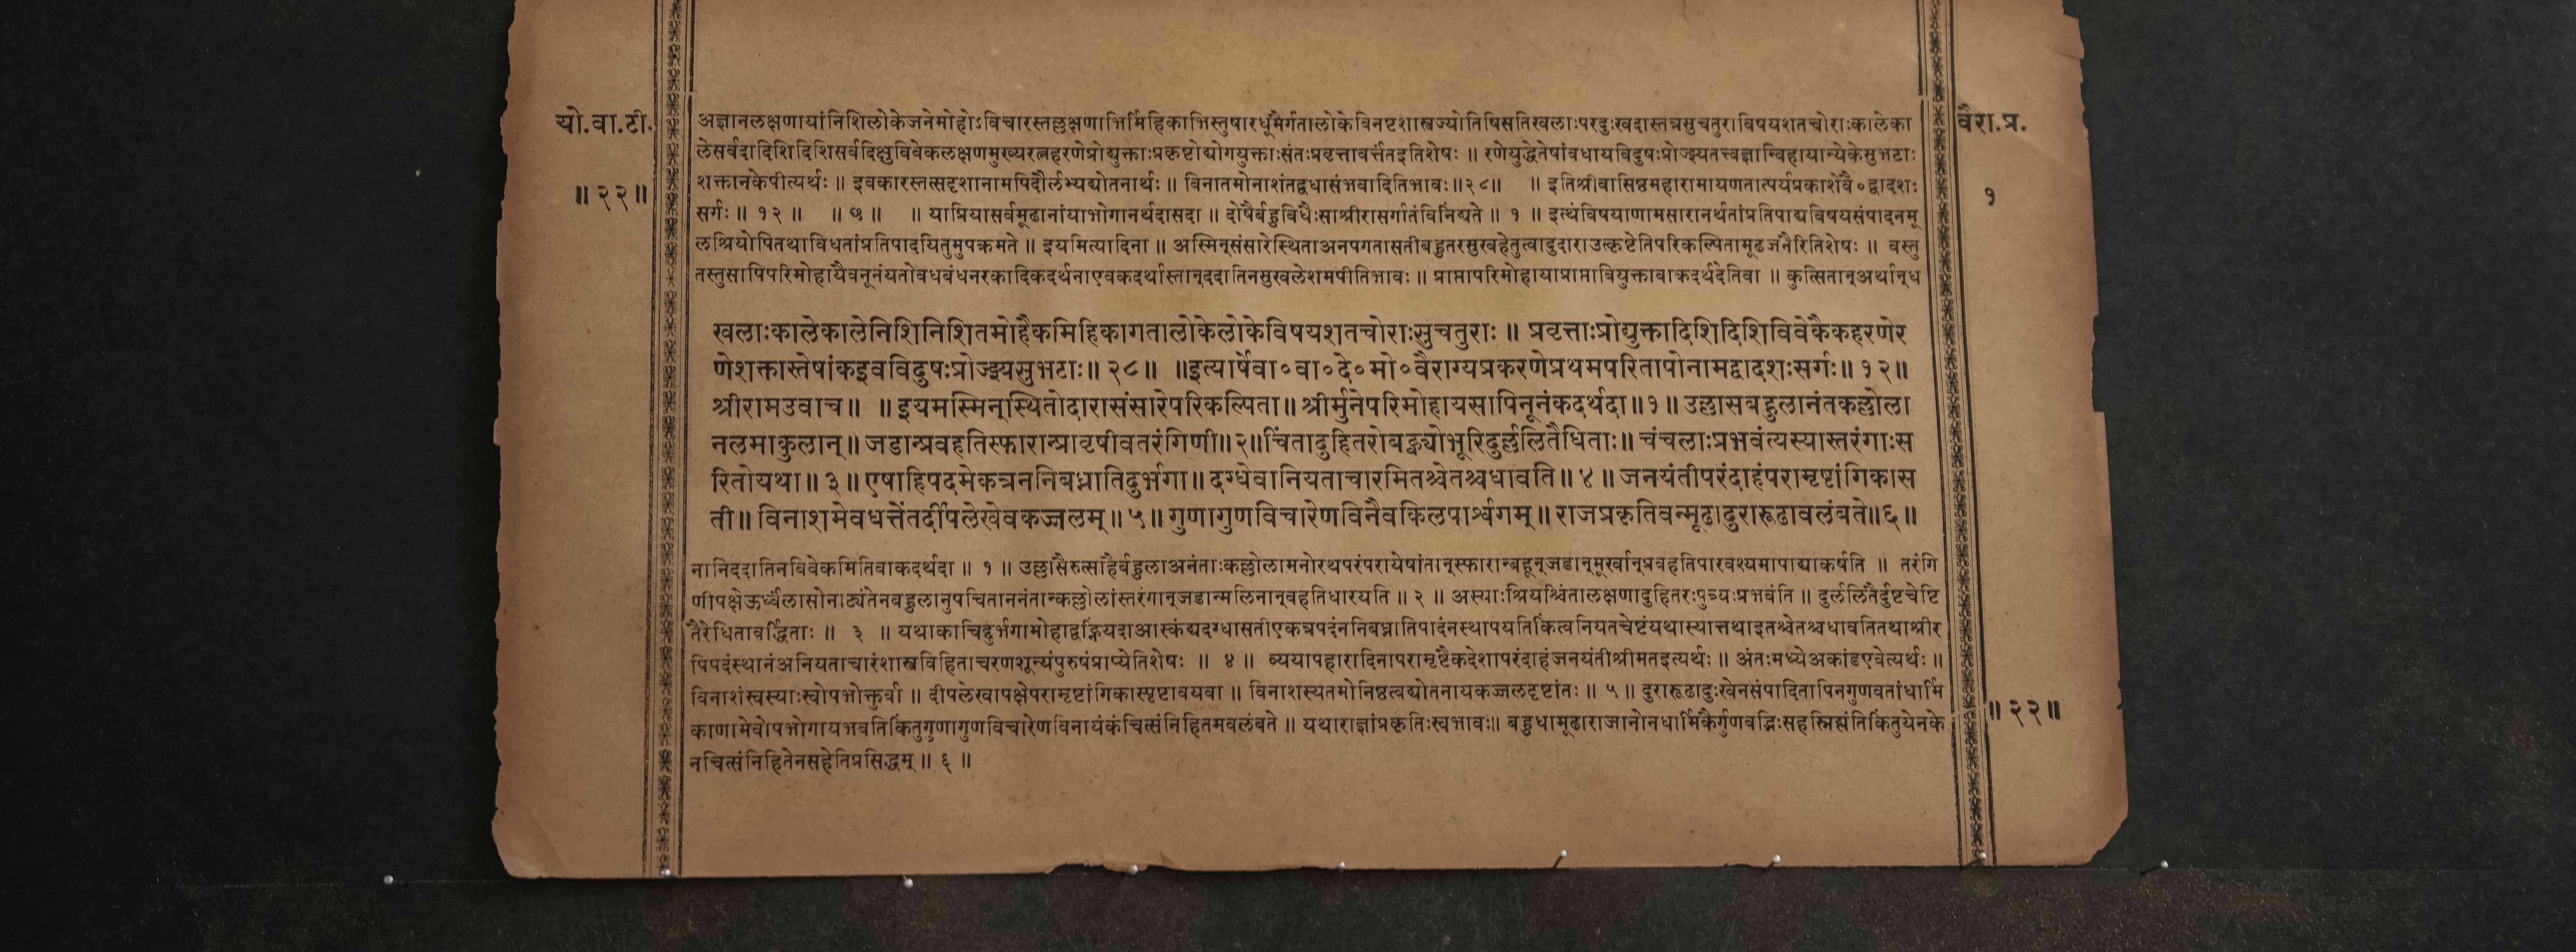 यो.वा.टी.
॥ २२॥
अज्ञानलक्षणायांनिशिलोकेजनेमोहोऽविचारस्तल्लक्षणाभिर्मिहिकाभिस्तुषारधूमैर्गतालोकेविनष्टशास्त्रज्योतिषिसतिखलाःपरदुःखदास्तत्रसुचतुराविषयशतचोराःकालेका
लेसर्वदादिशिदिशिसर्वदिक्षुविवेकलक्षणमुख्यरत्नहरणेप्रोद्युक्ताःप्रकृष्टोद्योगयुक्ताःसंतःप्रवृत्तावर्त्ततइतिशेषः ॥ रणेयुद्धेतेषांवधायविदुषःप्रोज्झ्यतत्त्वज्ञान्विहायान्येकेसुभटाः
शक्तानकेपीत्यर्थः ॥ इवकारस्तत्सदृशानामपिदौर्लभ्यद्योतनार्थः ॥ विनातमोनाशंतद्वधासंभवादितिभावः॥२८॥ ॥ इतिश्रीवासिष्ठमहारामायणतात्पर्यप्रकाशेवै०द्वादशः
सर्गः ॥ १२ ॥ ॥ ७ ॥ ॥ याप्रियासर्वमूढानांयाभोगानर्थदासदा ॥ दोषैर्बहुविधैःसाश्रीरासर्गातंविनिंद्यते ॥ १ ॥ इत्थंविषयाणामसारानर्थतांप्रतिपाद्यविषयसंपादनमू
लश्रियोपितथाविधतांप्रतिपादयितुमुपक्रमते ॥ इयमित्यादिना ॥ अस्मिन्संसारेस्थिताअनपगतासतीबहुतरसुखहेतुत्वादुदाराउत्कृष्टेतिपरिकल्पितामूढजनैरितिशेषः ॥ वस्तु
तस्तुसापिपरिमोहायैवनूनंयतोवधबंधनरकादिकदर्थनाएवकदर्थास्तान्ददातिनसुखलेशमपीतिभावः ॥ प्राप्तापरिमोहायाप्राप्तावियुक्तावाकदर्थदेतिवा ॥ कुत्सितान्अर्थान्ध
खलाःकालेकालेनिशिनिशितमोहैकमिहिकागतालोकेलोकेविषयशतचोराःसुचतुराः ॥ प्रवृत्ताःप्रोद्युक्तादिशिदिशिविवेकैकहरणेर
णेशक्तास्तेषांकइवविदुषःप्रोज्झ्यसुभटाः॥ २८॥ ॥इत्यार्षेवा०वा०दे०मो०वैराग्यप्रकरणेप्रथमपरितापोनामद्वादशःसर्गः॥ १२॥
श्रीरामउवाच॥ ॥ इयमस्मिन्स्थितोदारासंसारेपरिकल्पिता॥ श्रीर्मुनेपरिमोहायसापिनूनंकदर्थदा॥१॥ उल्लासबहुलानंतकल्लोला
नलमाकुलान्॥ जडान्प्रवहतिस्फारान्प्रावृषीवतरंगिणी॥२॥चिंतादुहितरोबह्व्योभूरिदुर्ल्ललितैधिताः॥ चंचलाःप्रभवंत्यस्यास्तरंगाःस
रितोयथा॥ ३॥ एषाहिपदमेकत्रननिबध्नातिदुर्भगा॥ दग्धेवानियताचारमितश्चेतश्चधावति॥ ४॥ जनयंतीपरंदाहंपरामृष्टांगिकास
ती॥ विनाशमेवधत्तेंतर्दीपलेखेवकज्जलम्॥ ५॥ गुणागुणविचारेणविनैवकिलपार्श्वगम्॥ राजप्रकृतिवन्मूढादुरारूढावलंबते॥६॥
नानिददातिनविवेकमितिवाकदर्थदा ॥ १ ॥ उल्लासैरुत्साहैर्बहुलाअनंताःकल्लोलामनोरथपरंपरायेषांतान्स्फारान्बहून्जडान्मूर्खान्प्रवहतिपारवश्यमापाद्याकर्षति ॥ तरंगि
णीपक्षेऊर्ध्वंलासोनाट्यंतेनबहुलानुपचिताननंतान्कल्लोलांस्तरंगान्जडान्मलिनान्वहतिधारयति ॥ २ ॥ अस्याःश्रियश्चिंतालक्षणादुहितरःपुत्र्यःप्रभवंति ॥ दुर्ललितैर्दुष्टचेष्टि
तैरेधितावर्द्धिताः ॥ ३ ॥ यथाकाचिद्दुर्भगामोहाद्वह्नियदाआस्कंद्यदग्धासतीएकत्रपदंननिबध्नातिपादंनस्थापयतिकिंत्वनियतचेष्टंयथास्यात्तथाइतश्चेतश्चधावतितथाश्रीर
पिपदंस्थानंअनियताचारंशास्त्रविहिताचरणशून्यंपुरुषंप्राप्येतिशेषः ॥ ४ ॥ व्ययापहारादिनापरामृष्टैकदेशापरंदाहंजनयंतीश्रीमतइत्यर्थः ॥ अंतःमध्येअकांडएवेत्यर्थः ॥
विनाशंस्वस्याःस्वोपभोक्तुर्वा ॥ दीपलेखापक्षेपरामृष्टांगिकास्पृष्टावयवा ॥ विनाशस्यतमोनिष्ठत्वद्योतनायकज्जलदृष्टांतः ॥ ५ ॥ दुरारूढादुःखेनसंपादितापिनगुणवतांधार्मि
काणामेवोपभोगायभवतिकिंतुगुणागुणविचारेणविनायंकंचित्संनिहितमवलंबते ॥ यथाराज्ञांप्रकृतिःस्वभावः॥ बहुधामूढाराजानोनधार्मिकैर्गुणवद्भिःसहस्निह्यंतिकिंतुयेनके
नचित्संनिहितेनसहेतिप्रसिद्धम् ॥ ६ ॥
वैरा.प्र.
१
॥ २२॥